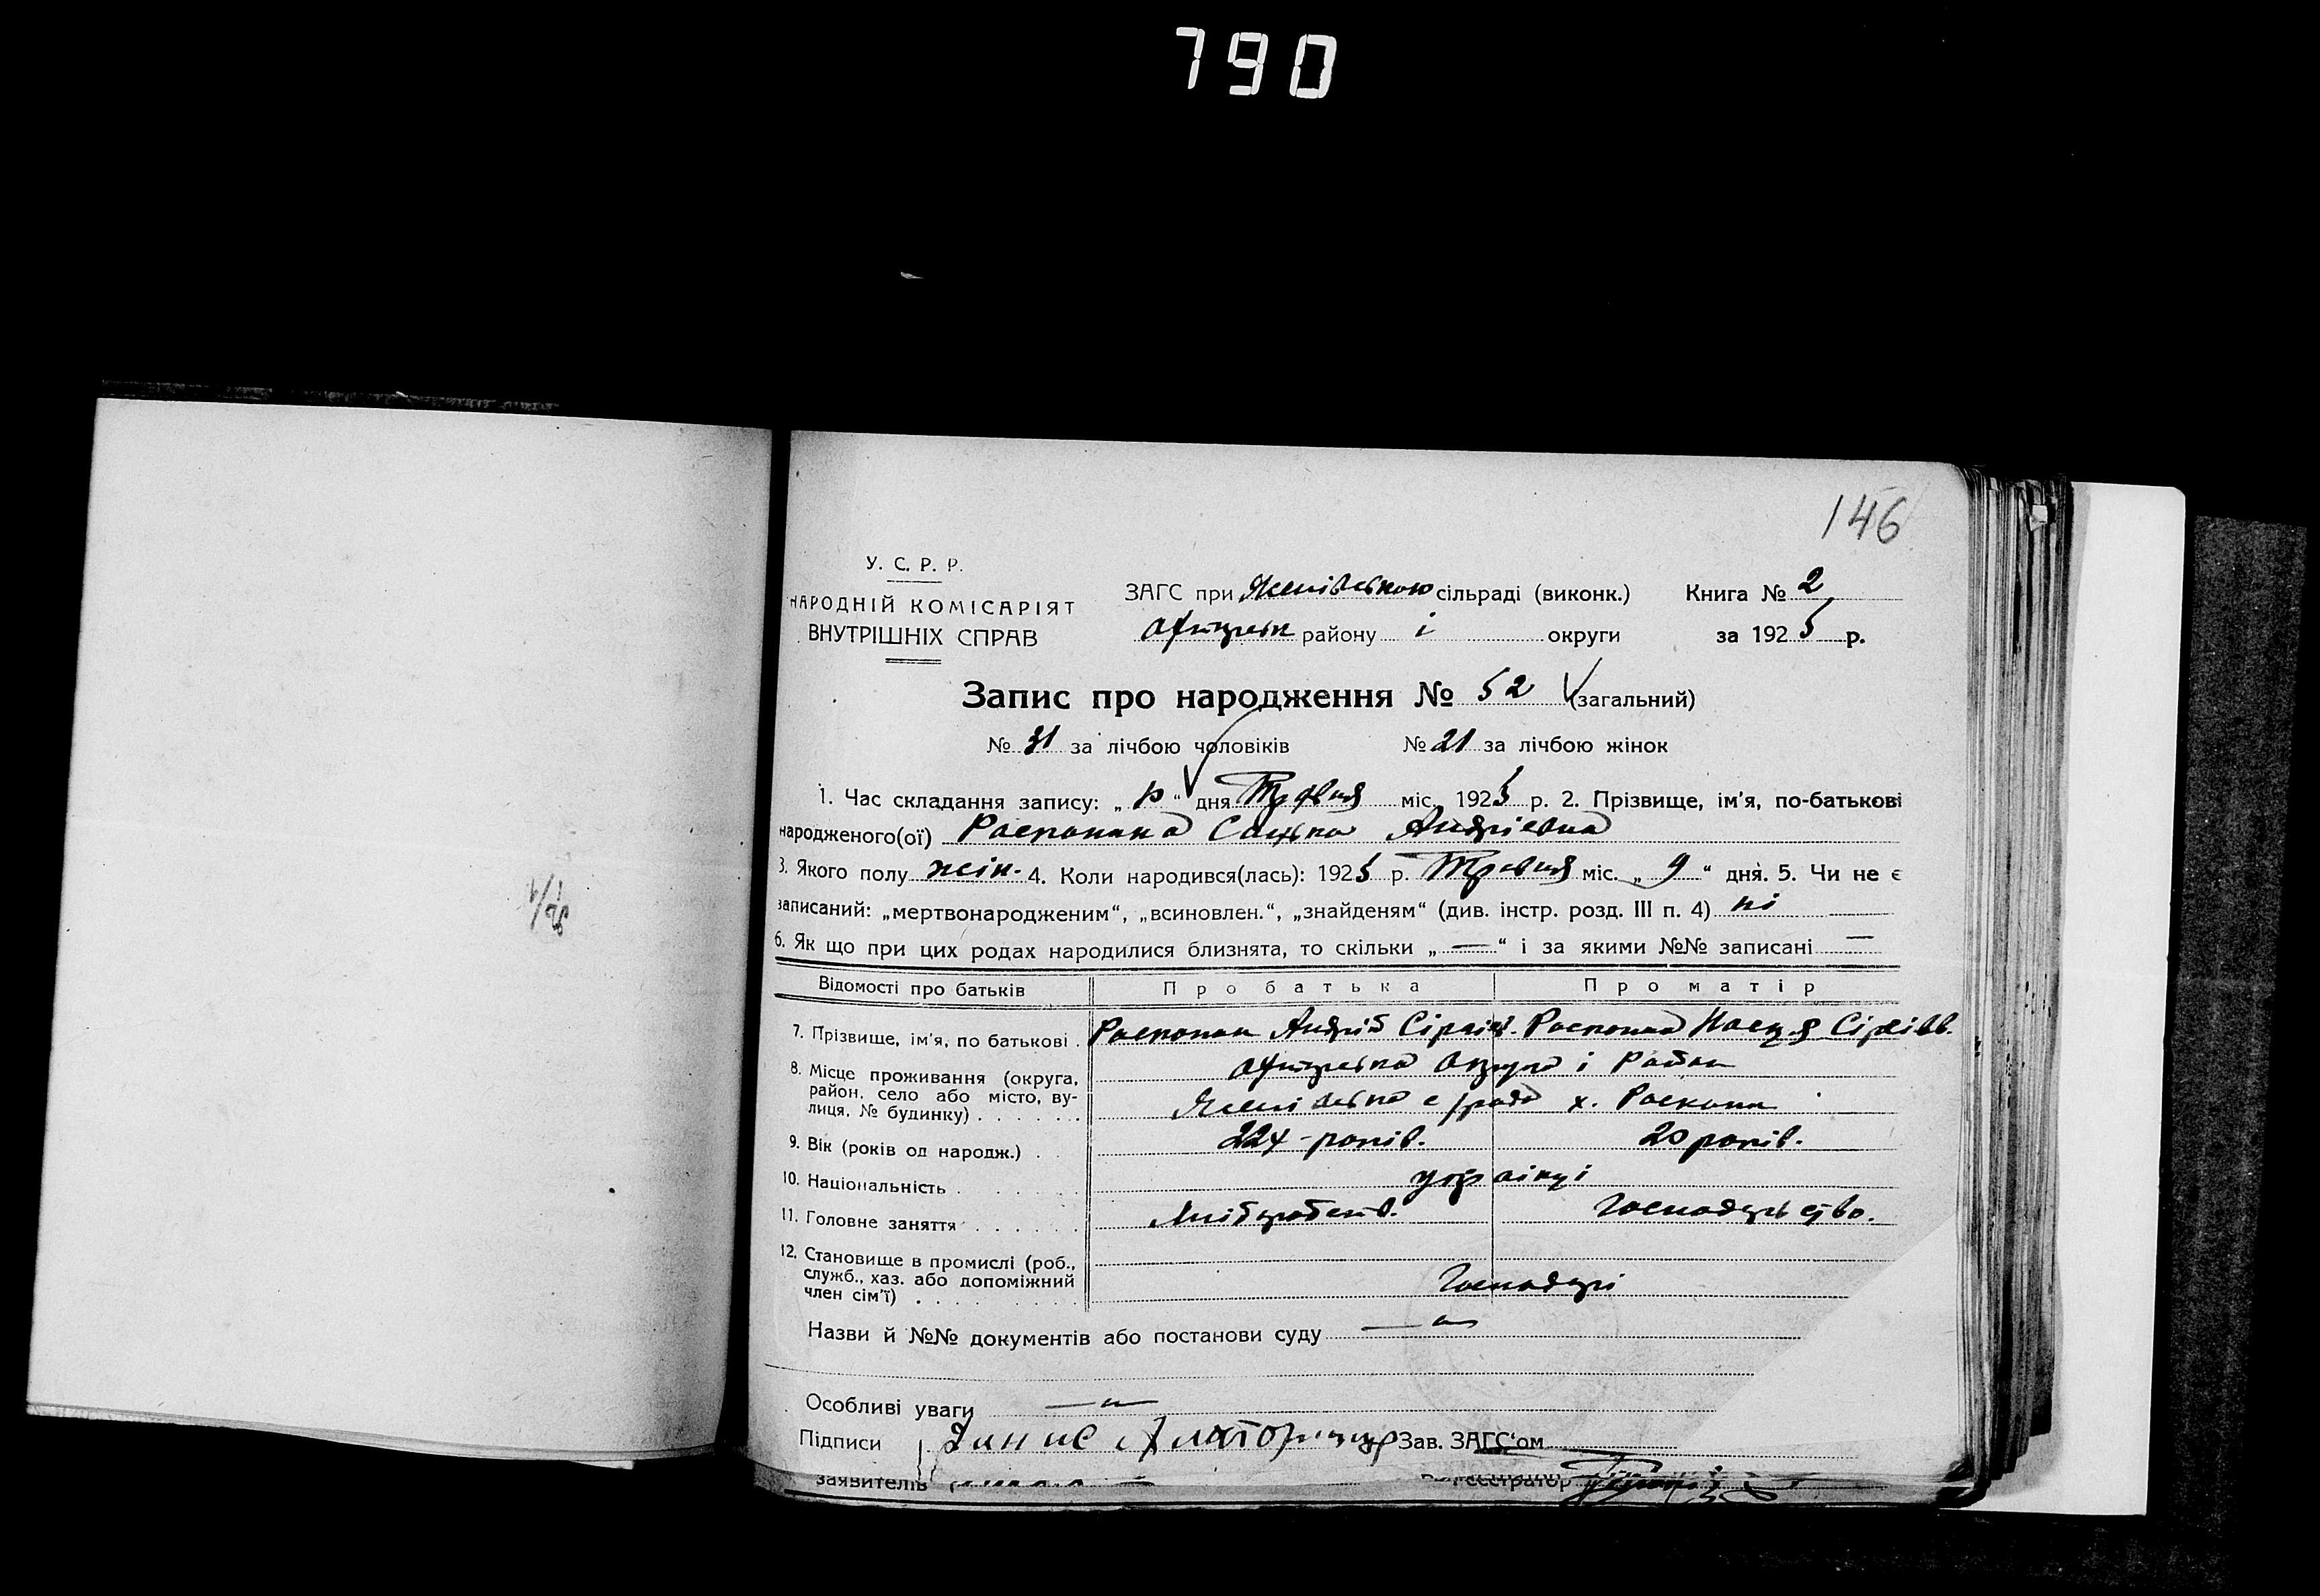 790
146
У. С. Р. Р.
НАРОДНІЙ КОМІСАРІЯТ
ВНУТРІШНІХ СПРАВ
ЗАГС при сільраді (виконк.) Книга № 2
району і округи за 1925 р.
Запис про народження № 52 (загальний)
№ 31 за лічбою чоловіків № 21 за лічбою жінок
1. Час складання запису: „ 10 “ дня Травня міс. 1925 р. 2. Прізвище, ім'я, по-батькові
народженого(ої) Андріевна
3. Якого полу жін. 4. Коли народився(лась): 1925 р. Травня міс. „ 9 “ дня. 5. Чи не є
записаний: „мертвонародженим“, „всиновлен.“, „знайденям“ (див. інстр. розд. III п. 4) ні
6. Як що при цих родах народилися близнята, то скільки „ — “ і за якими №№ записані —
Відомості про батьків Про батька Про матір
7. Прізвище, ім'я, по батькові . Андрій
8. Місце проживання (округа, район, село або місто, вулиця, № будинку) . . . . . .
округа і Район
с/рада х.
9. Вік (років од народж.) . . років. 20 років.
10. Національність . . . . . . українці
11. Головне заняття . . . . . . Хліборобств. Господарство.
12. Становище в промислі (роб., служб., хаз. або допоміжний член сім'ї) . . . . Господарі
Назви й №№ документів або постанови суду — „ —
Особливі уваги — „ —
Підписи Зав. ЗАГС'ом
заявителів Реєстратор